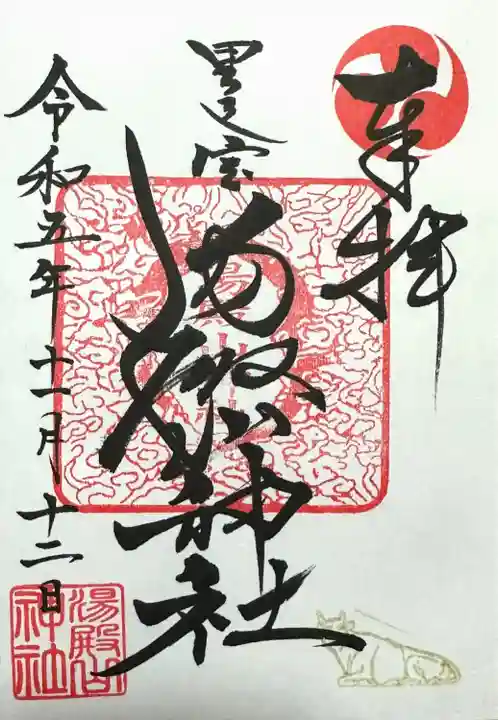 奉拝
里之宮
湯殿山神社
令和五年十一月十二日
湯殿山
神社